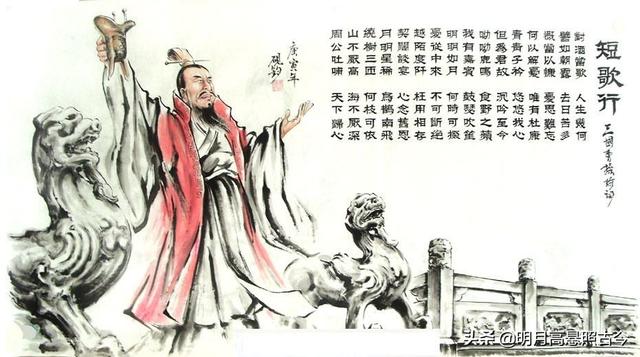 短歌行
三國曹操
對酒當歌 人生幾何
譬如朝露 去日苦多
慨當以慷 憂思難忘
何以解憂 唯有杜康
青青子衿 悠悠我心
但為君故 沉吟至今
呦呦鹿鳴 食野之蘋
我有嘉賓 鼓瑟吹笙
明明如月 何時可掇
憂從中來 不可斷絕
越陌度阡 枉用相存
契闊談宴 心念舊恩
月明星稀 烏鵲南飛
繞樹三匝 何枝可依
山不厭高 海不厭深
周公吐哺 天下歸心
庚寅年
头条 @明月高悬照古今